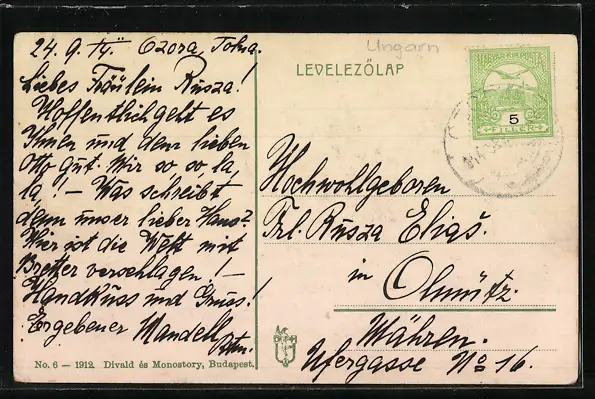 Ungarn
24. 9. 14. Ozora, Tolna.
LEVELEZŐLAP
MAGYAR KIR. POSTA
5
FILLER
Liebes Fräulein Rusza!
Hoffentlich geht es
Ihnen und dem lieben
Otto gut. Wir so, so, la,
la! – Was schreibt
denn unser lieber Hans?
Hier ist die Welt mit
Bretter verschlagen! –
Handkuss und Gruss!
Ergebener Mandell
Hochwohlgeboren
Frl. Rusza Eliaš.
in Olmütz.
Mähren.
Ufergasse No 16.
No. 6 — 1912. Divald és Monostory, Budapest.